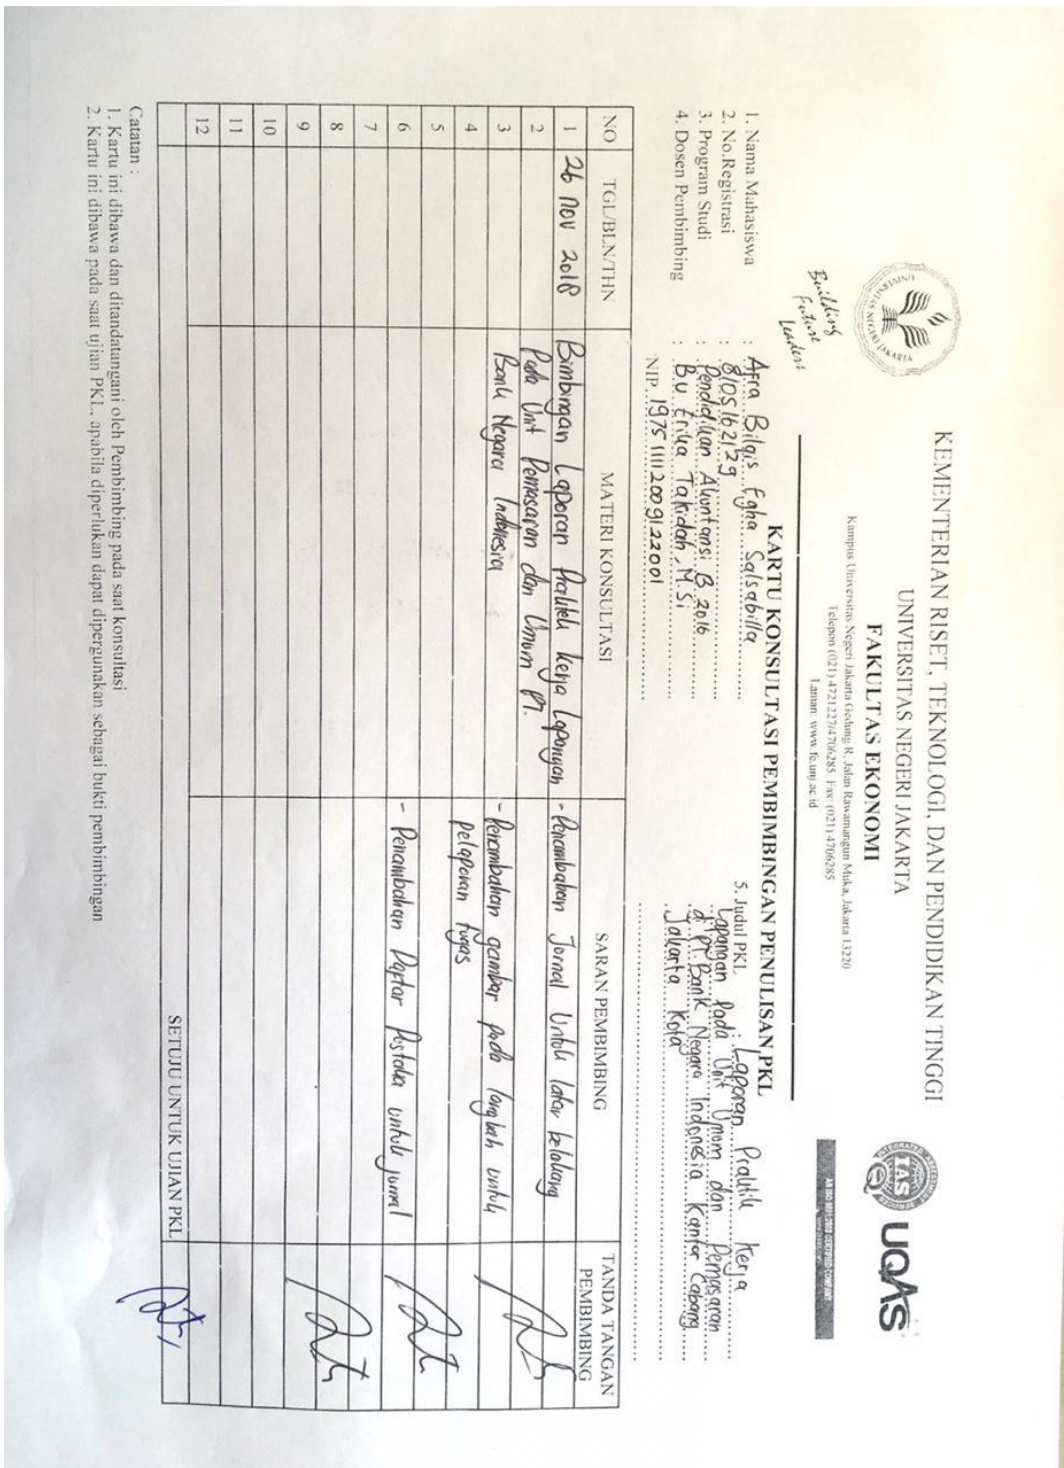 KEMENTERIAN RISET, TEKNOLOGI, DAN PENDIDIKAN TINGGI
UNIVERSITAS NEGERI JAKARTA
FAKULTAS EKONOMI
Kampus Universitas Negeri Jakarta Gedung R, Jalan Rawamangun Muka, Jakarta 13220
Telepon (021) 4721227/4706285. Fax: (021) 4706285
Laman: www.fe.unj.ac.id
UNIVERSITAS NEGERI JAKARTA
Building
Future
Leaders
IAS
UQAS
KARTU KONSULTASI PEMBIMBINGAN PENULISAN PKL
1. Nama Mahasiswa : Afra Bilqis Egha Salsabilla
2. No.Registrasi : 8105162129
3. Program Studi : Pendidikan Akuntansi B 2016
4. Dosen Pembimbing : Bu Erika Takidah, M.Si
NIP. 197511112009122001
5. Judul PKL : Laporan Praktik Kerja
Lapangan Pada Unit Umum dan Pemasaran
di PT. Bank Negara Indonesia Kantor Cabang
Jakarta Kota
NO TGL/BLN/THN MATERI KONSULTASI SARAN PEMBIMBING TANDA TANGAN PEMBIMBING
1 26 Nov 2018 Bimbingan Laporan Praktek kerja Lapangan - Penambahan Jurnal Untuk latar belakang
2 Pada Unit Pemasaran dan Umum PT.
3 Bank Negara Indonesia - Penambahan gambar pada langkah untuk
4 pelaporan tugas
5
6 - Penambahan Daftar Pustaka untuk jurnal
7
8
9
10
11
12
SETUJU UNTUK UJIAN PKL
Catatan :
1. Kartu ini dibawa dan ditandatangani oleh Pembimbing pada saat konsultasi
2. Kartu ini dibawa pada saat ujian PKL, apabila diperlukan dapat dipergunakan sebagai bukti pembimbingan